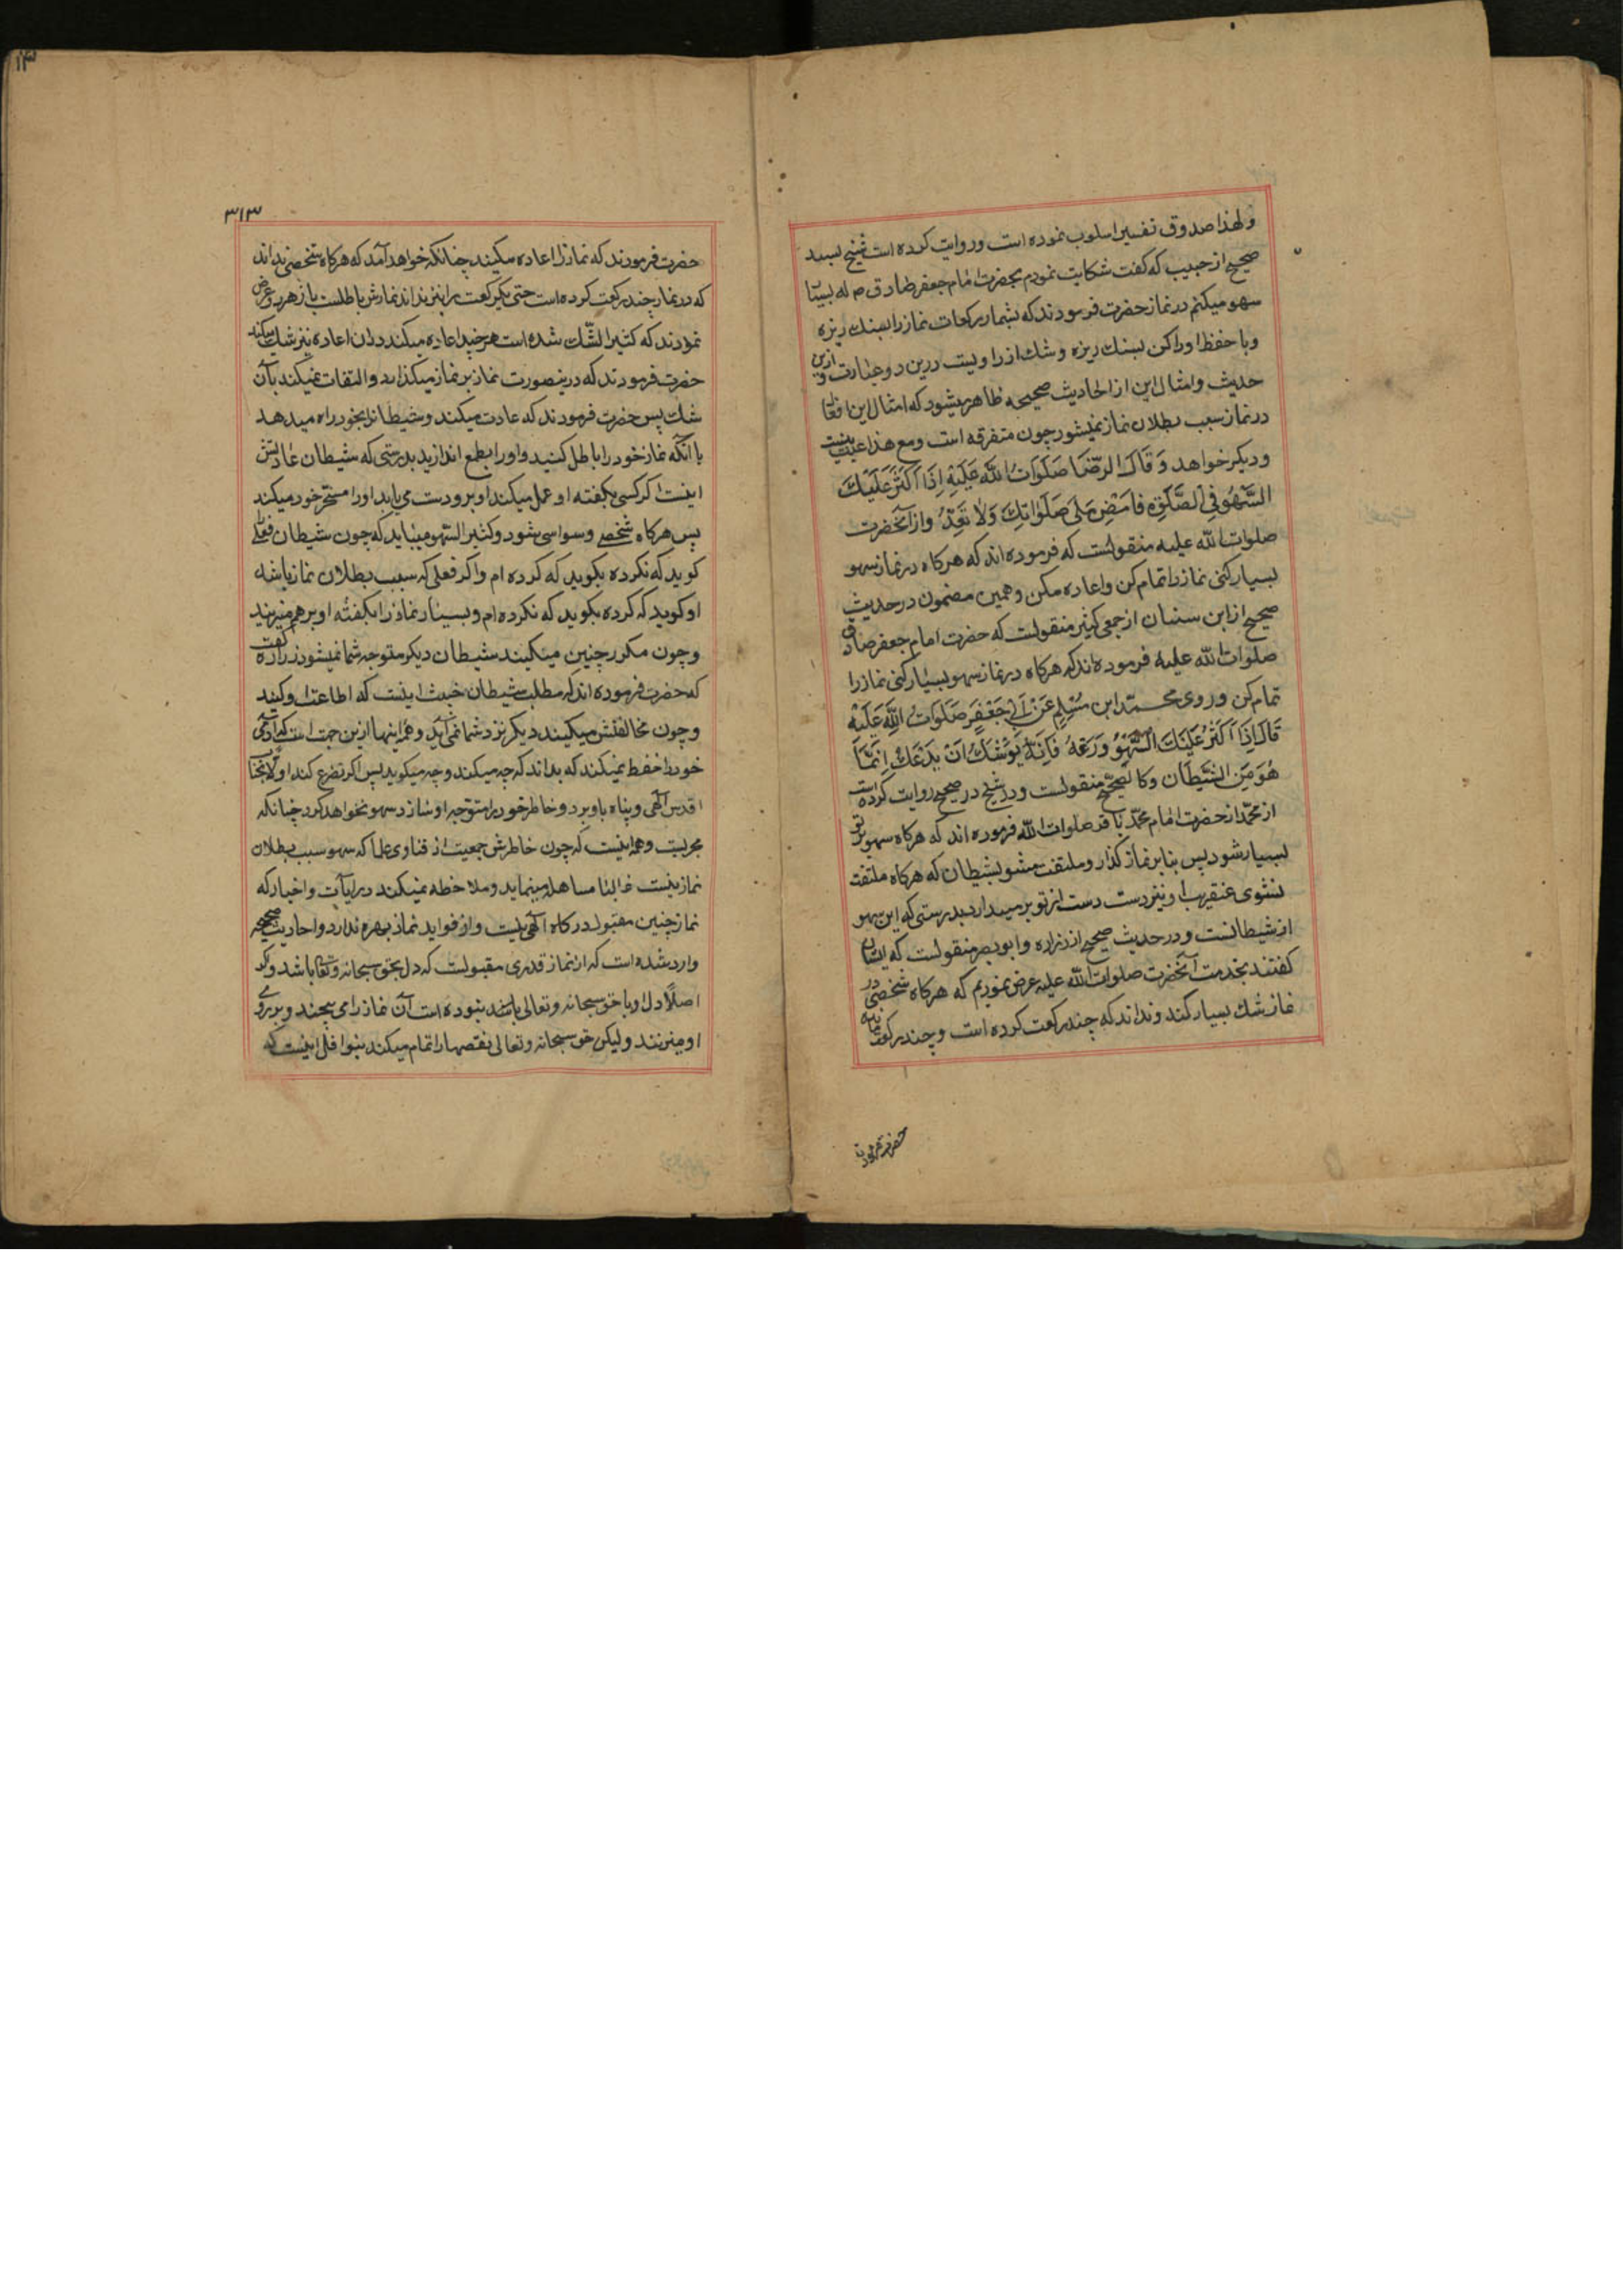 ولهذا صدوق تفسیر اسلوب نموده است و روایت کرده است شیخ بسند
صحیح از حبیب که گفت شکایت نمودم بحضرت امام جعفر صادق ص له بسیار
سهو میکنم در نماز حضرت فرمودند که بشمار رکعات نماز را بسنك ریزه
و یا حفظ او را کن بسنك ریزه و شك از راویست درین دو عبارت و ازین
حدیث و امثال این از احادیث صحیحه ظاهر میشود که امثال این افعال
در نماز سبب بطلان نماز نمیشود چون متفرقه است و مع هذا عبث نیست
و دیکر خواهد وَقَالَ الرِّضَا صَلَوَاتُ اللهِ عَلَيْهِ إِذَا أَكْثَرَ عَلَيْكَ
السَّهْوُ فِي الصَّلٰوةِ فَامْضِ عَلَى صَلَوٰاتِكَ وَلَا تَعُدْ و از آنحضرت
صلوات الله علیه منقولست که فرموده اند که هرکاه در نماز سهو
بسیار کنی نماز را تمام کن و اعاده مکن و همین مضمون در حدیث
صحیح از ابن سنان از جمعی کثیر منقولست که حضرت امام جعفر صادق
صلوات الله علیه فرموده اند که هرکاه در نماز سهو بسیار کنی نماز را
تمام کن و روی محمّد ابن مُسْلِمٍ عَنْ أَبِي جَعْفَرٍ صَلَوَاتُ اللهِ عَلَيْهِ
قَالَ إِذَا أَكْثَرَ عَلَيْكَ السَّهْوُ وَدَعْهُ فَإِنَّهُ يُوْشَكُ أَنْ يَدَعَكَ إِنَّمَا
هُوَ مِنَ الشَّيْطَانِ و کالصّحیح منقولست و شیخ در صحیح روایت کرده است
از محمّد از حضرت امام محمّد باقر صلوات الله فرموده اند که هرکاه سهو بر تو
بسیار شود پس بنا بر نماز کذار و ملتفت مشو بشیطان که هرکاه ملتفت
نشوی عنقریب او نیز دست از تو بر میدارد بدرستی که این سهو
از شیطانست و در حدیث صحیح از زراره و ابو بصیر منقولست که ایشان
کفتند بخدمت آنحضرت صلوات الله علیه عرض نمودیم که هرکاه شخصی در
نماز شك بسیار کند و نداند که چند رکعت کرده است و چند رکعت مانده
حضرت فرمودند
۳۱۳
حضرت فرمودند که نماز را اعاده میکند چنانکه خواهد آمد که هرکاه شخصی نداند
که در نماز چند رکعت کرده است حتی یکرکعت را نیز نداند نمازش باطلست باز هر دو عرض
نمودند که کثیر الشّك شده است هر چند اعاده میکند در ان اعاده نیز شك میکند
حضرت فرمودند که درینصورت نماز بر نماز میکذارد و التفات نمیکند بآن
شك پس حضرت فرمودند که عادت میکند و شیطانرا بخود راه میدهد
با انکه نماز خود را باطل کنید و او را بطمع اندازید بدرستی که شیطان عادتش
اینست اکر کسی بکفته او عمل میکند او برو دست می یابد او را مسخّر خود میکند
پس هرکاه شخصی وسواسی شود و کثیر السّهو میباید که چون شیطان فعلی
کوید که نکرده بکوید که کرده ام و اکر فعلی که سبب بطلان نماز باشد
او کوید که کرده بکوید که نکرده ام و بسیار نماز را بکفته او بر هم نزنید
و چون مکرر چنین میکنید شیطان دیکر متوجه شما نمیشود زراره گفت
که حضرت فرموده اند که مطلب شیطان خبیث اینست که اطاعت او کنید
و چون مخالفتش میکنید دیکر نزد شما نمی آید و همه اینها ازین جهت است که آدمی
خود را حفظ نمیکند که بداند که چه میکند و چه میکوید پس اکر تضرع کند اولا بجناب
اقدس الٰهی و پناه باو برد و خاطر خود را متوجه او سازد سهو نخواهد کرد چنانکه
مجربست و همه اینست که چون خاطرش جمعیت از فتاوی علما که سهو سبب بطلان
نماز نیست غالبا مساهله مینماید و ملاحظه نمیکند در آیات و اخبار که
نماز چنین مقبول درکاه الٰهی نیست و از فواید نماز بهره ندارد و احادیث صحیحه
وارد شده است که از نماز قدری مقبولست که دل بحق سبحانه و تعالی باشد و اکر
اصلاً دل او با حق سبحانه و تعالی نباشد نبوده است آن نماز را می پیچند و بر روی
او میزنند و لیکن حق سبحانه و تعالی نقصها را تمام میکند بنوافل اینست که